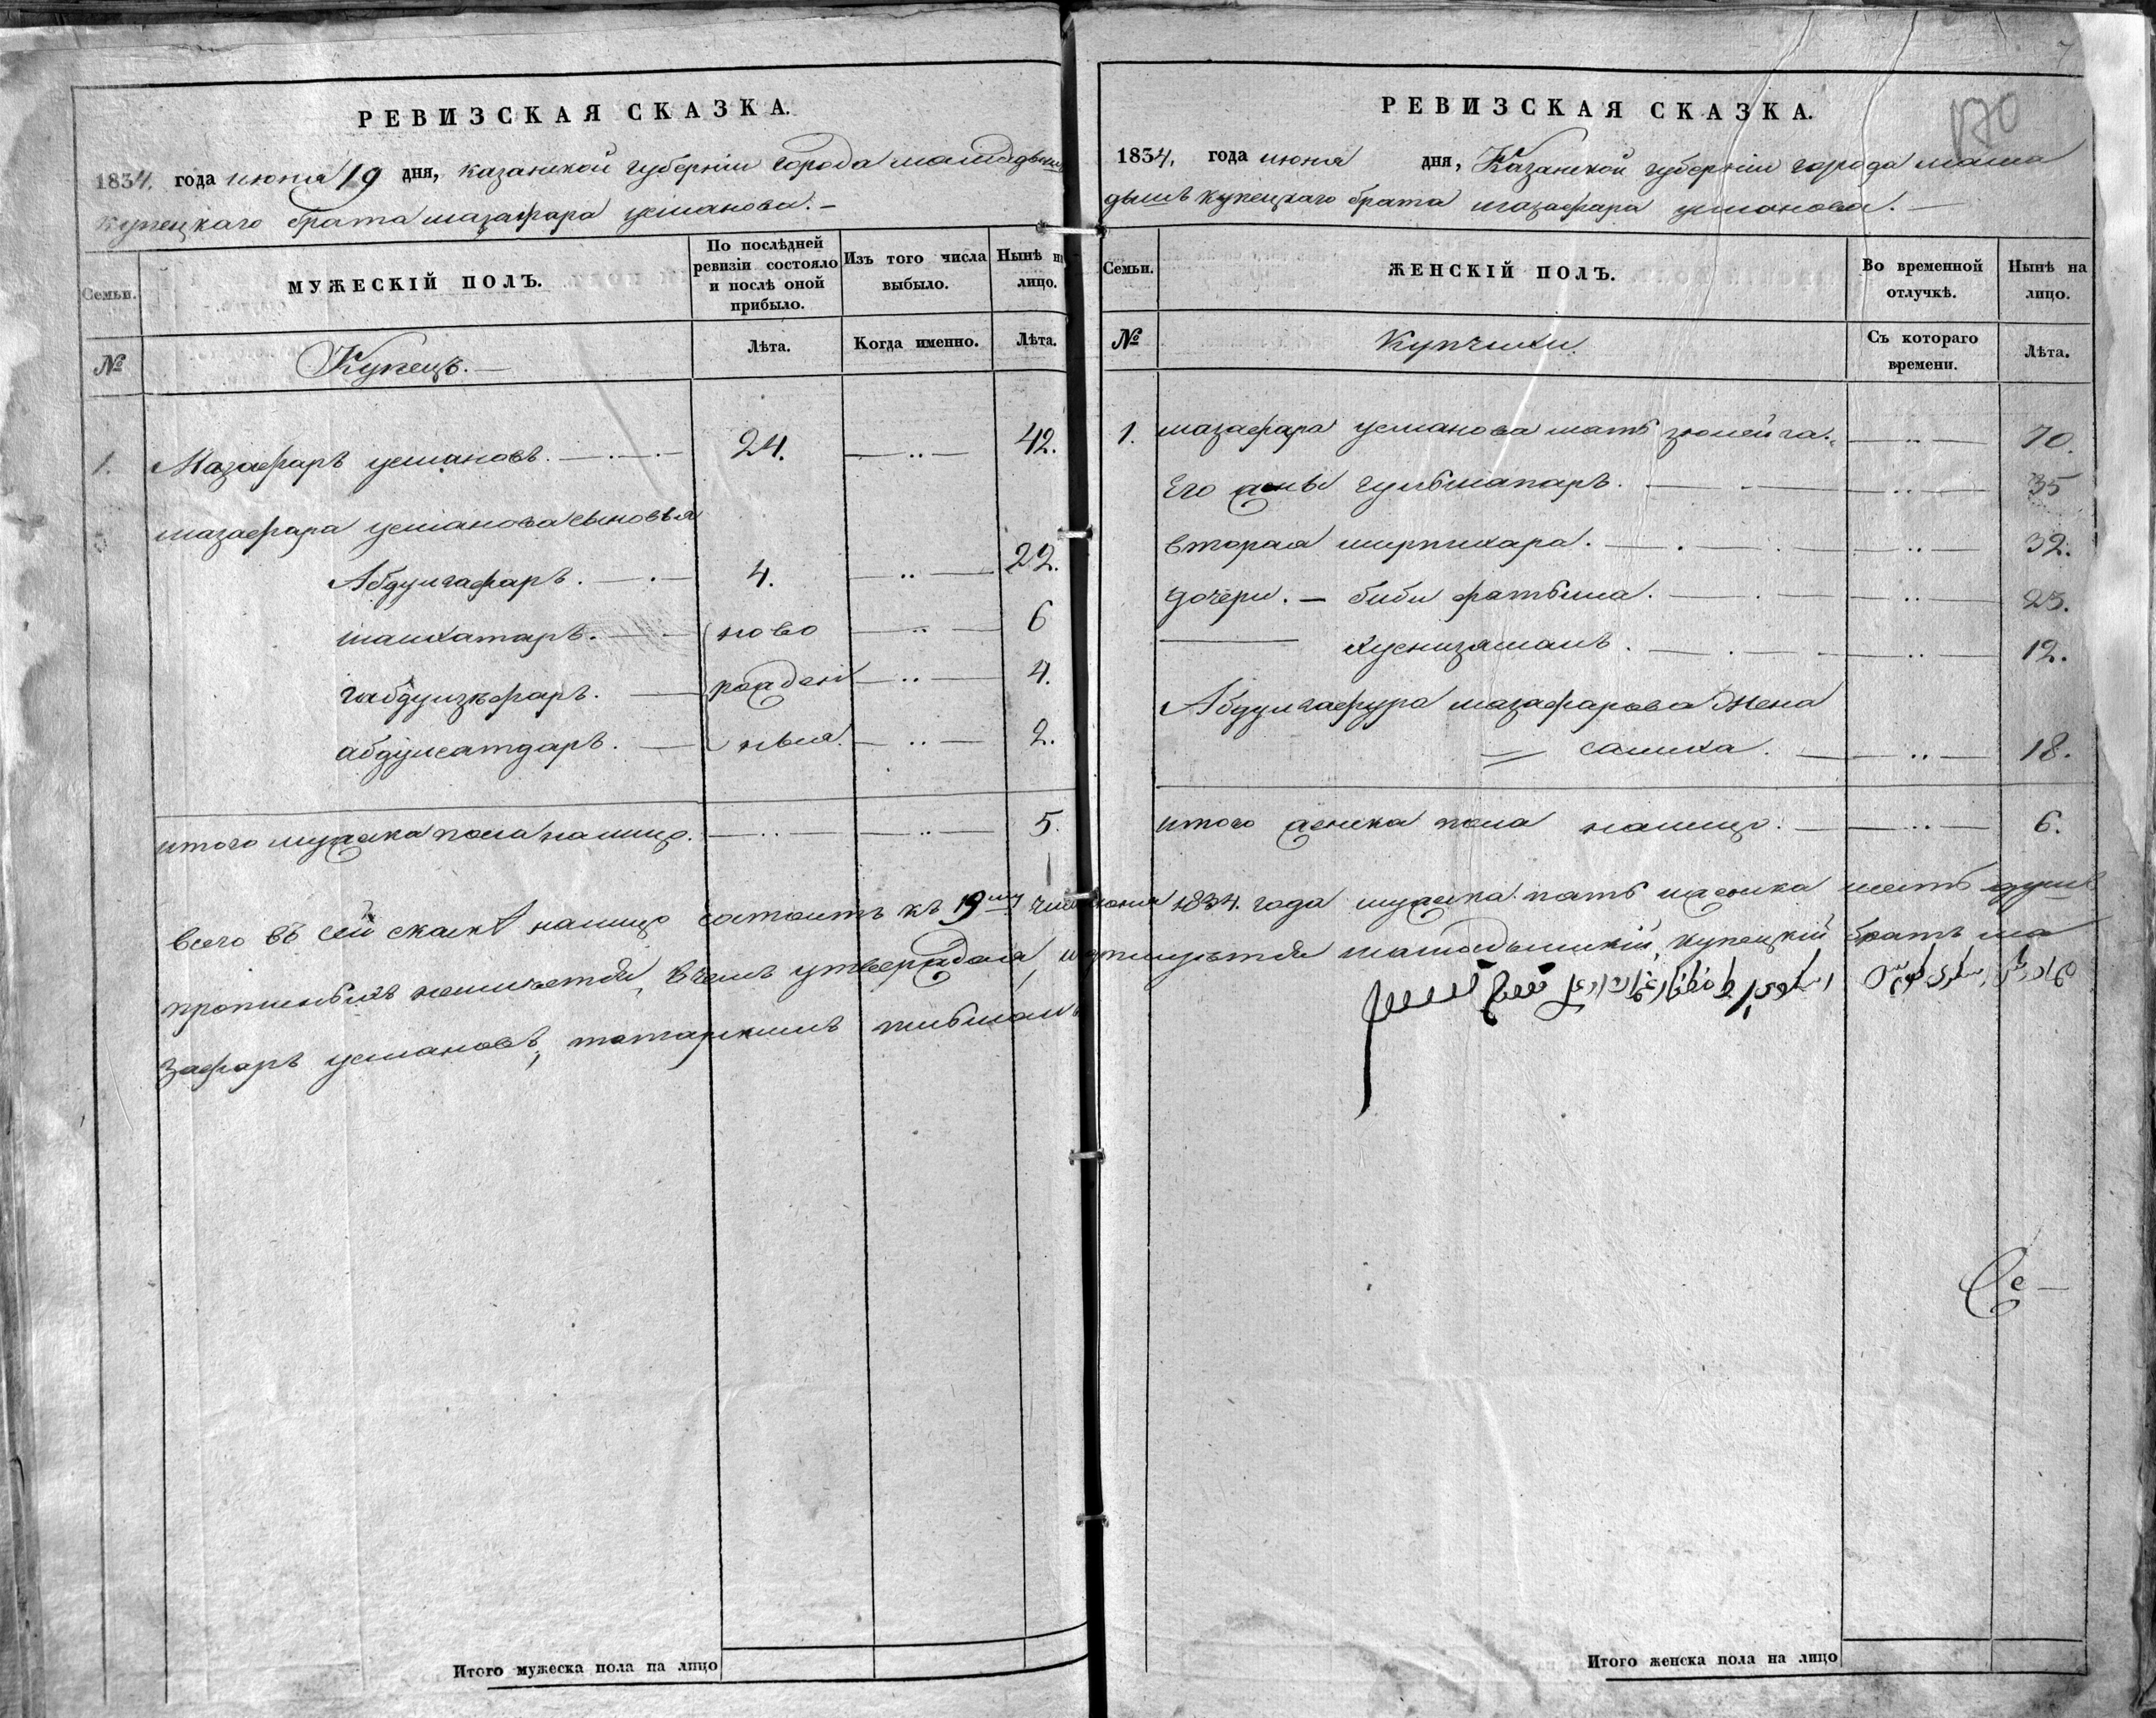 РЕВИЗСКАЯ СКАЗКА.
1834. года июня 19 дня, казанской губернiи города мамадыша
купецкаго брата мазафара усманова.
Семьи. МУЖЕСКIЙ ПОЛЪ. По послѣдней ревизiи состояло и послѣ оной прибыло. Изъ того числа выбыло. Нынѣ на лицо.
№ Купецъ. Лѣта. Когда именно. Лѣта.
1. Мазафаръ усмановъ. 24. 42.
мазафара усманова сыновья
Абдулгафаръ. 4. 22.
шаихатаръ. ново 6
габдулзефаръ. рожден 4.
абдулсатдаръ. ныя. 2.
итого мужска пола налицо. 5.
РЕВИЗСКАЯ СКАЗКА.
170
7
1834. года июня дня, Казанской губернiи города мама
дышъ купецкаго брата мазафара усманова.
Семьи. ЖЕНСКIЙ ПОЛЪ. Во временной отлучкѣ. Нынѣ на лицо.
№ Купчихи Съ котораго времени. Лѣта.
1. мазафара усманова мать зюлейга. 70.
Его жены гульбшапаръ. 35
вторая ширпихара. 32.
дочери. биби фатьима. 23.
хуснизаманъ. 12.
Абдулгафура мазафарова жена
салиха. 18.
итого женска пола налицо. 6.
всего въ сей скаскѣ налицо состоитъ къ 19му числу июня 1834. года мужска пять и женска шесть душъ
прописныхъ неимѣется, вчемъ утверждая, и подписуется мамадышскiй купецкiй братъ ма
зафаръ усмановъ, татарскимъ письмамъ
Итого мужеска пола на лицо
Итого женска пола на лицо